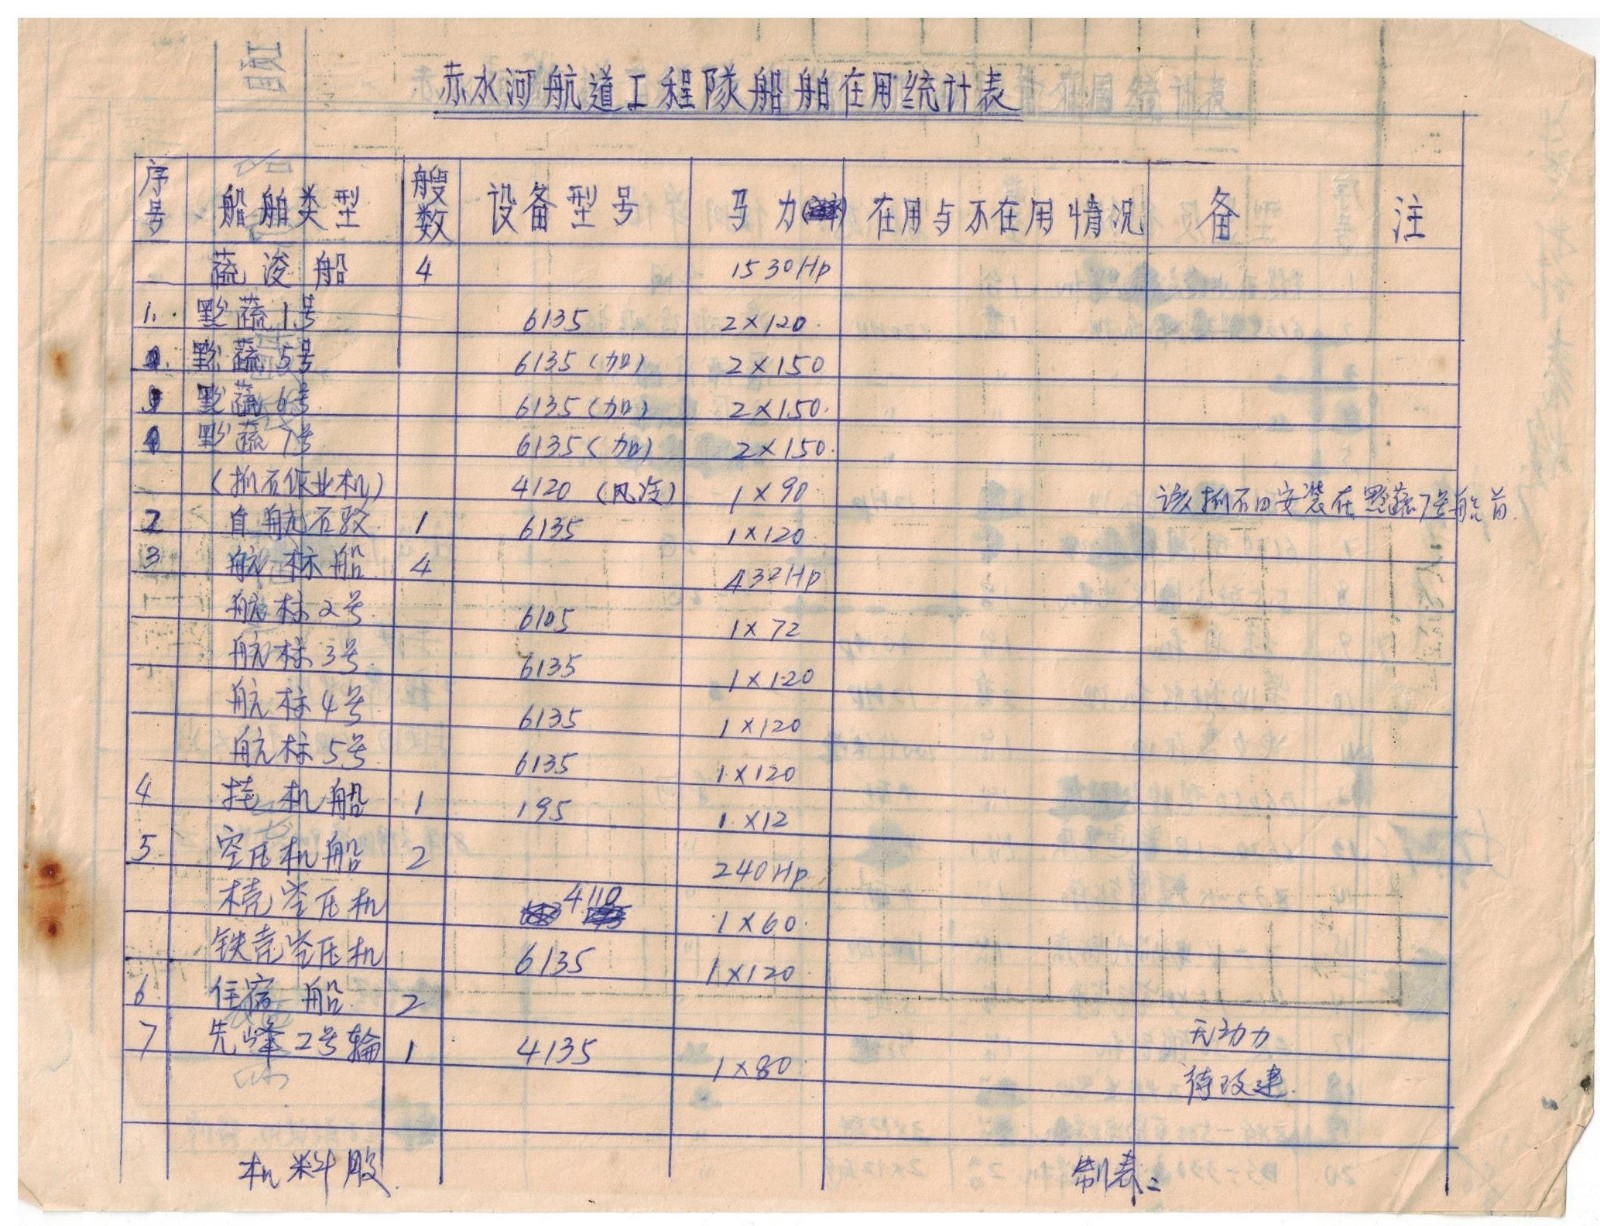 赤水河航道工程隊船舶在用统计表
序号 船舶类型 艘数 设备型号 马力 在用与不在用情况 备 注
一 蔬浚船 4 1530Hp
1. 黔蔬1号 6135 2×120
黔蔬5号 6135(加) 2×150
黔蔬6号 6135(加) 2×150.
黔蔬7号 6135(加) 2×150.
(抓石作业机) 4120 (风冷) 1×90 该抓石口安装在黔蔬7号船首
2 自航石驳 1 6135 1×120
3 航标船 4 432Hp
航标2号 6105 1×72
航标3号 6135 1×120
航标4号 6135 1×120
航标5号 6135 1×120
4 挂机船 1 195 1×12
5 空压机船 2 240Hp
木壳空压机 4110 1×60
铁壳空压机 6135 1×120
6 住宿船 2 无动力
7 先峰2号轮 1 4135 1×80 待改建.
机料股 制表: